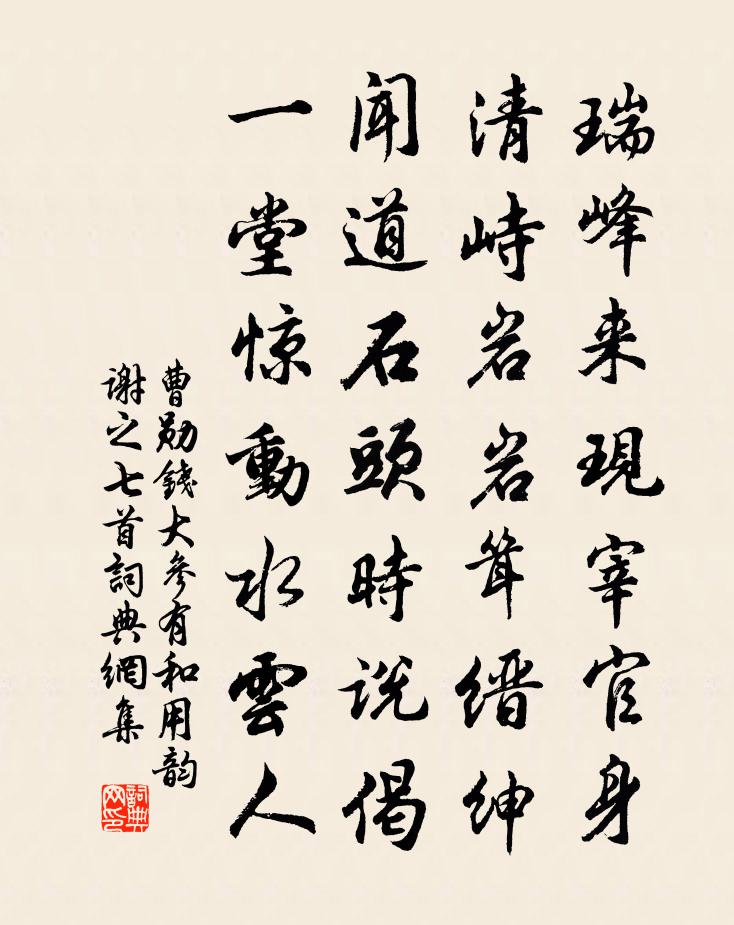 瑞峰来現宰官身
清峙岩岩耸缙绅
闻道石頭時説偈
一堂惊動水雲人
曹勛錢大參有和用韵
謝之七首詞典網集
詞典網印